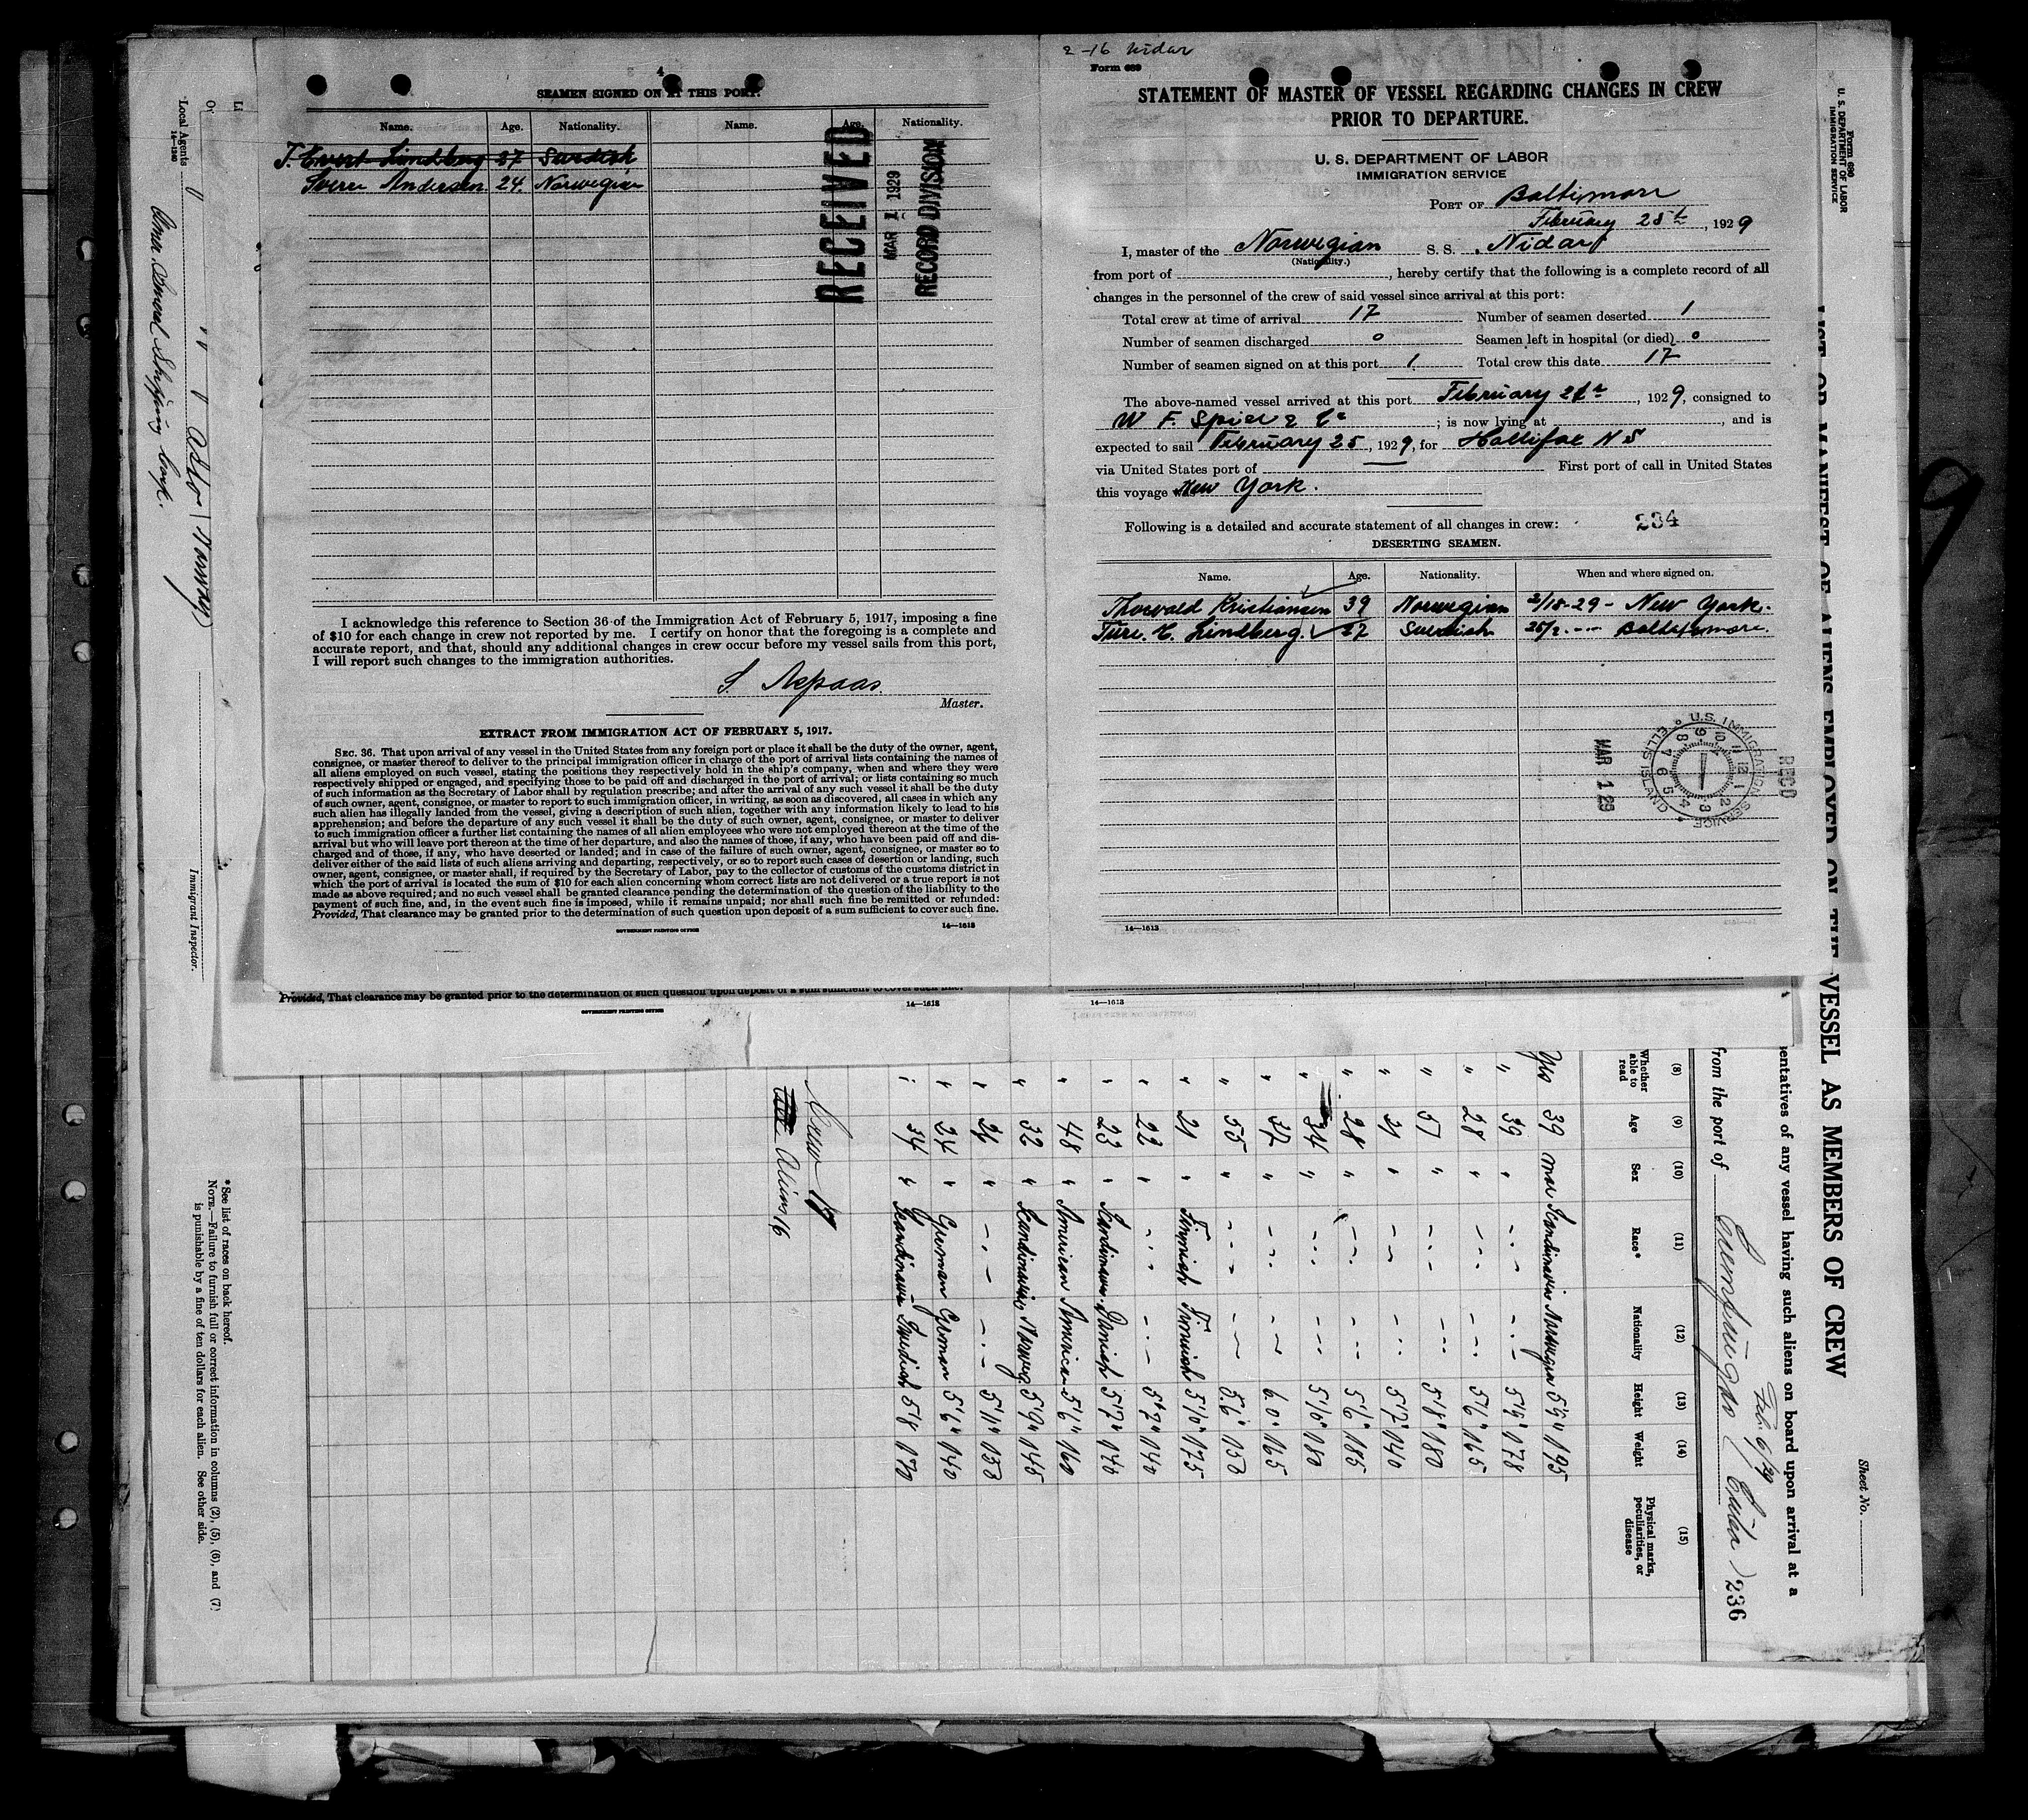 4
SEAMEN SIGNED ON AT THIS PORT.
Name. Age. Nationality. Name. Age. Nationality.
T. Evert Lindberg 27 Swedish
Sverre Andersen 24. Norwegian
RECEIVED
MAR 1 1929
RECORD DIVISION
I acknowledge this reference to Section 36 of the Immigration Act of February 5, 1917, imposing a fine
of $10 for each change in crew not reported by me. I certify on honor that the foregoing is a complete and
accurate report, and that, should any additional changes in crew occur before my vessel sails from this port,
I will report such changes to the immigration authorities.
S
Master.
EXTRACT FROM IMMIGRATION ACT OF FEBRUARY 5, 1917.
SEC. 36. That upon arrival of any vessel in the United States from any foreign port or place it shall be the duty of the owner, agent,
consignee, or master thereof to deliver to the principal immigration officer in charge of the port of arrival lists containing the names of
all aliens employed on such vessel, stating the positions they respectively hold in the ship's company, when and where they were
respectively shipped or engaged, and specifying those to be paid off and discharged in the port of arrival; or lists containing so much
of such information as the Secretary of Labor shall by regulation prescribe; and after the arrival of any such vessel it shall be the duty
of such owner, agent, consignee, or master to report to such immigration officer, in writing, as soon as discovered, all cases in which any
such alien has illegally landed from the vessel, giving a description of such alien, together with any information likely to lead to his
apprehension; and before the departure of any such vessel it shall be the duty of such owner, agent, consignee, or master to deliver
to such immigration officer a further list containing the names of all alien employees who were not employed thereon at the time of the
arrival but who will leave port thereon at the time of her departure, and also the names of those, if any, who have been paid off and dis-
charged and of those, if any, who have deserted or landed; and in case of the failure of such owner, agent, consignee, or master so to
deliver either of the said lists of such aliens arriving and departing, respectively, or so to report such cases of desertion or landing, such
owner, agent, consignee, or master shall, if required by the Secretary of Labor, pay to the collector of customs of the customs district in
which the port of arrival is located the sum of $10 for each alien concerning whom correct lists are not delivered or a true report is not
made as above required; and no such vessel shall be granted clearance pending the determination of the question of the liability to the
payment of such fine, and, in the event such fine is imposed, while it remains unpaid; nor shall such fine be remitted or refunded:
Provided, That clearance may be granted prior to the determination of such question upon deposit of a sum sufficient to cover such fine.
GOVERNMENT PRINTING OFFICE
14—1613
2-16 Nidar
Form 689
STATEMENT OF MASTER OF VESSEL REGARDING CHANGES IN CREW
PRIOR TO DEPARTURE.
U. S. DEPARTMENT OF LABOR
IMMIGRATION SERVICE
PORT OF Baltimore
February 25th, 1929
I, master of the Norwegian S. S. Nidar
(Nationality.)
from port of , hereby certify that the following is a complete record of all
changes in the personnel of the crew of said vessel since arrival at this port:
Total crew at time of arrival 17 Number of seamen deserted 1
Number of seamen discharged 0 Seamen left in hospital (or died) 0
Number of seamen signed on at this port 1. Total crew this date 17
The above-named vessel arrived at this port February , 1929, consigned to
W F. Spier & Co ; is now lying at , and is
expected to sail February 25, 1929, for Hallifax N S
via United States port of First port of call in United States
this voyage New York.
Following is a detailed and accurate statement of all changes in crew: 234
DESERTING SEAMEN.
Name. Age. Nationality. When and where signed on.
Thorvald Kristiansen 39 Norwegian 2/18-29 - New York.
Ture. E. Lindberg. 27 Swedish 25/2 -- Baltimore.
REC'D
U.S. IMMIGRATION SERVICE
ELLIS ISLAND
MAR 1 29
14—1613
Provided, That clearance may be granted prior to the determination of such question upon deposit of a sum sufficient to cover such fine.
GOVERNMENT PRINTING OFFICE
14—1613
14—1613
Form 680
U. S. DEPARTMENT OF LABOR
IMMIGRATION SERVICE
Sheet No.
LIST OR MANIFEST OF ALIENS EMPLOYED ON THE VESSEL AS MEMBERS OF CREW
entatives of any vessel having such aliens on board upon arrival at a
Feb. 6/29
from the port of Cienfuegos (Cuba) 236
(8) (9) (10) (11) (12) (13) (14) (15)
Whether able to read Age Sex Race* Nationality Height Weight Physical marks, peculiarities, or disease
Yes 39 mal Scandinavin Norwegian 5'5" 195
" 39 " - - - - 5'9" 178
" 28 " - - - - 5'6" 165
" 57 " - - - - 5'8" 180
" 21 " - - - - 5'7" 140
" 28 " - - - - 5'6" 185
" 34 " - - - - 5'10" 180
" 32 " - - - - 6.0" 165
" 55 " - - - - 5.6" 153
" 21 " Finnish Finnish 5'10" 175
" 22 " - - - - 5'7" 140
" 23 " Scandinavn. Danish 5'7"
" 48 " American American 5'6" 160
" 32 " Scandinavin Norweg. 5'9" 145
" " - - - - 5'11" 153
" 24 " German German 5'6" 140
" 34 " Scandinavin Swedish 5'8" 170
Crew 17
Aliens 16
* See list of races on back hereof.
NOTE.—Failure to furnish full or correct information in columns (2), (5), (6), and (7)
is punishable by a fine of ten dollars for each alien. See other side.
Oslo (Norway)
Immigrant Inspector.
Local Agents
14—1240
Shipping Corp.